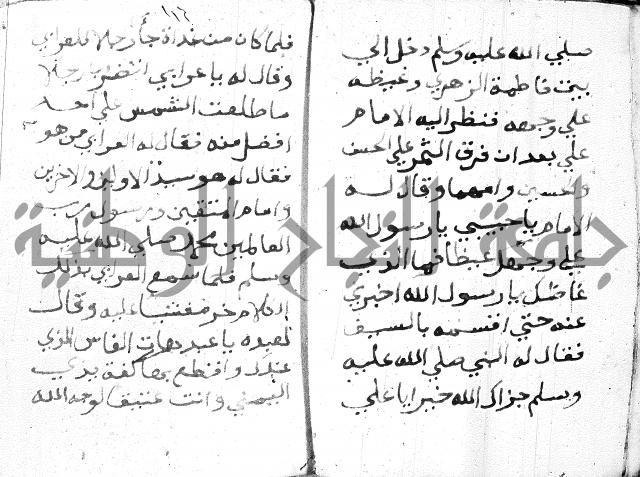 صلي الله عليه وسلم دخل الي
بيت فاطمة الزهري وغيظه
علي وجهه فنظر اليه الامام
علي بعد ان فرق الثمر علي الحسن
والحسين وامهما وقال له
الامام يا حبيبي يا رسول الله
علي وجهك غيظا فما الذي
غاضك يا رسول الله اخبرني
عنه حتي اقسمه بالسيف
فقال له النبي صلي الله عليه
وسلم جزاك الله خيرا يا علي
١١٦
فلما كان من غداة جا رجلا للعرابي
وقال له يا عرابي انتضر يا رجلا
ما طلعت الشمس علي احد
افضل منه فقال له العرابي من هو
فقال له هو سيد الاولين والاخرين
وامام المتقين ورسول رب
العالمين محمد صلي الله عليه
وسلم فلما سمع العرابي بذلك
الكلام خر مغشيا عليه وقال
لعبده يا عبد هات الفاس الذي
عندك واقطع بها كفة يدي
اليمني وانت عتيقا لوجه الله
جامعة النجاح الوطنية